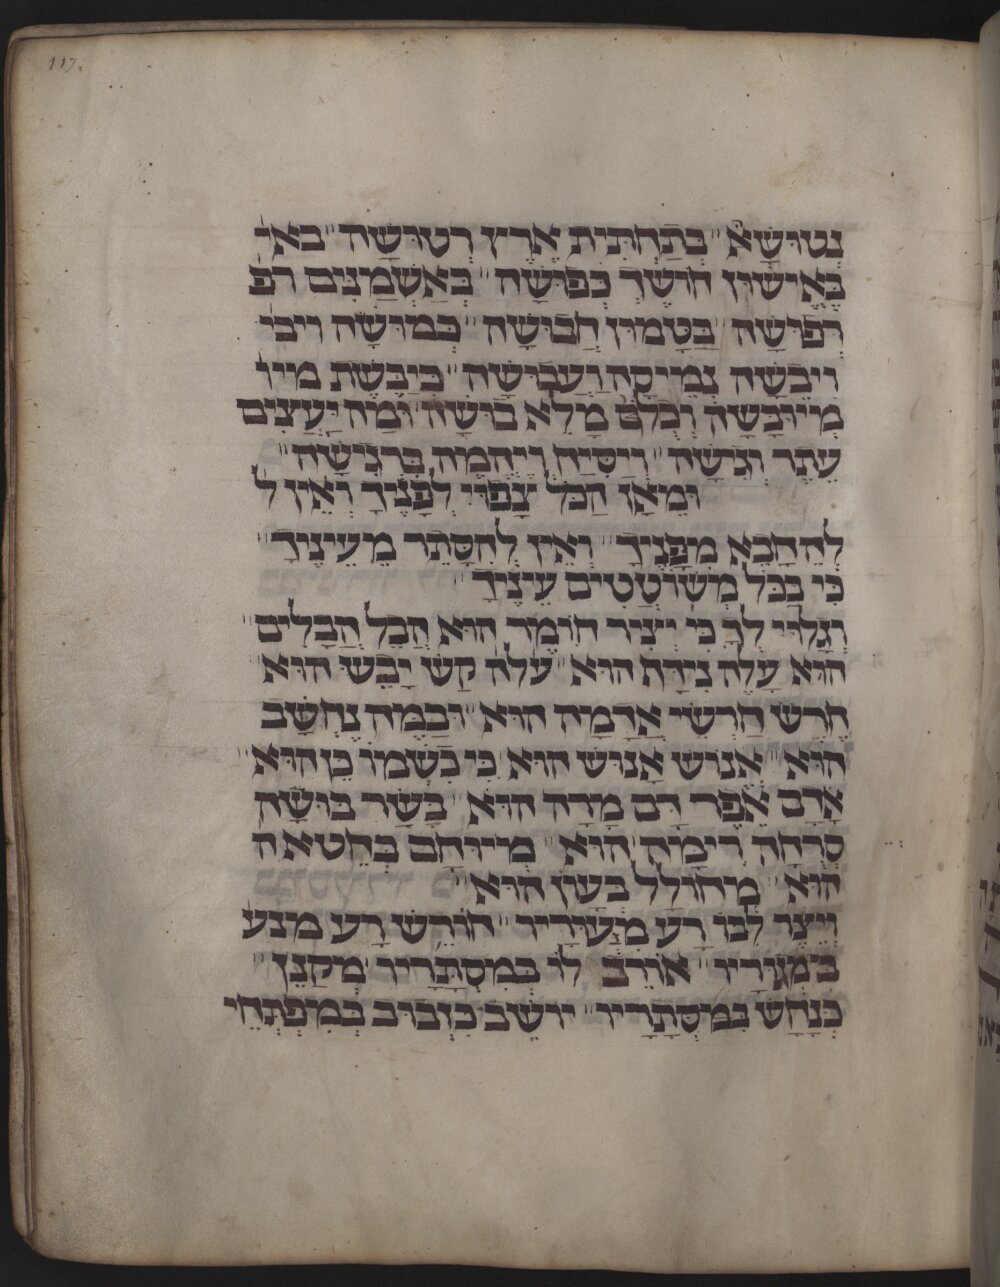 117.
נְטוּשָׁא׳׳ בְּתַחְתִּית אֶרֶץ רְטוּשָׁה׳׳ באי
בְּאִישׁוּן חוֹשֶׁךְ כְּפוּשָׁה׳׳ בְּאַשְׁמַנִּים רפ
רְפוּשָׁה׳׳ בְּטָמוּן חֲבוּשָׁה׳׳ כְּמוּשָׁה ויבי
וִיבֵשָׁה צְמֵיקָה וַעֲבוּשָׁה׳׳ כִּיבֶשֶׁת מיו
מְיוּבָּשָׁה וְכֻלָּם מָלֵא בוּשָׁה וּמַה יַּעֲצִים
עֶתֶר וְגִישָׁה׳׳ וְיַסִּיחַ וְיֶהֱמֶה בְּרְגִישָׁה׳׳
וּמֵאָן הַכֹּל צָפוּי לְפָנֶיךָ וְאֵין ל
לְהֵחָבֵא מִפָּנֶיךָ׳׳ וְאֵין לְהִסָּתֵר מֵעֵינֶיךָ׳׳
כִּי בַכֹּל מְשׁוֹטְטִים עֵינֶיךָ׳׳
וְגָלוּי לְךָ כִּי יְצִיר חוֹמֶר הוּא הֲבֵל הֲבָלִים׳׳
הוּא עָלֶה נִידָּף הוּא׳׳ עלה קַשׁ יָבֵשׁ הוּא׳׳
חֶרֶשׂ חַרְשֵׂי אֲדָמָה הוּא׳׳ וּבַמֶּה נֶחְשָׁב
הוּא׳׳ אֱנוֹשׁ אָנוּשׁ הוּא כִּי כִשְׁמוֹ כֵן הוּא׳׳
אָדָם אֵפֶר דַּם מָרָה הוּא׳׳ בָּשָׂר בּוּשָׁה
סְרוּחָה רִימָּה הוּא׳׳ מְיוּחָם בְּחֵטְא ה
הוּא׳׳ מְחוֹלָל בְּעָוֹן הוּא׳׳
וְיֵצֶר לִבּוֹ רַע מִנְּעוּרָיו׳׳ חוֹרֵשׁ רָע מנע
בִּימְגוּרָיו׳׳ אוֹרֵב לוֹ בְמִסְתָּרָיו מְקַנֵּן׳׳
כְּנָחָשׁ בְּמִסְתָּרָיו׳׳ יוֹשֵׁב כִּזְבוּב בְּמִפְתְּחֵי